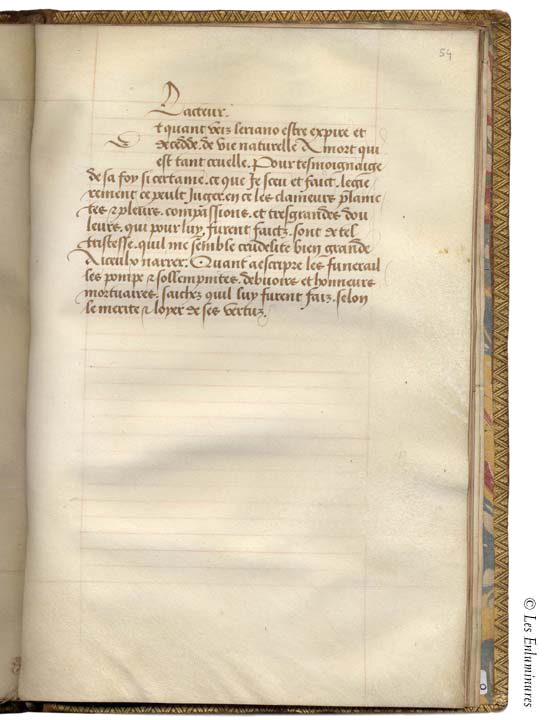 54
Lacteur.
Et quant veis leriano estre expire et
decedde. de vie naturelle A mort qui
est tant cruelle. Pour tesmoignaige
de sa foy si certaine. ce que Je sceu et faict. legie
rement ce peult Juger. en ce les clameurs plainc
tes & pleurs. compassions. et tresgrandes dou
leurs, qui pour luy, furent faictz. sont de tel
tristesse. quil me semble crudelite bien grande
A iceulx narrer. Quant a escripre les funerail
les pompe & sollempnites. debuoirs et honneurs
mortuaires, saichez quil luy furent faiz. selon
le merite & loyer de ses vertuz.
© Les Enluminures